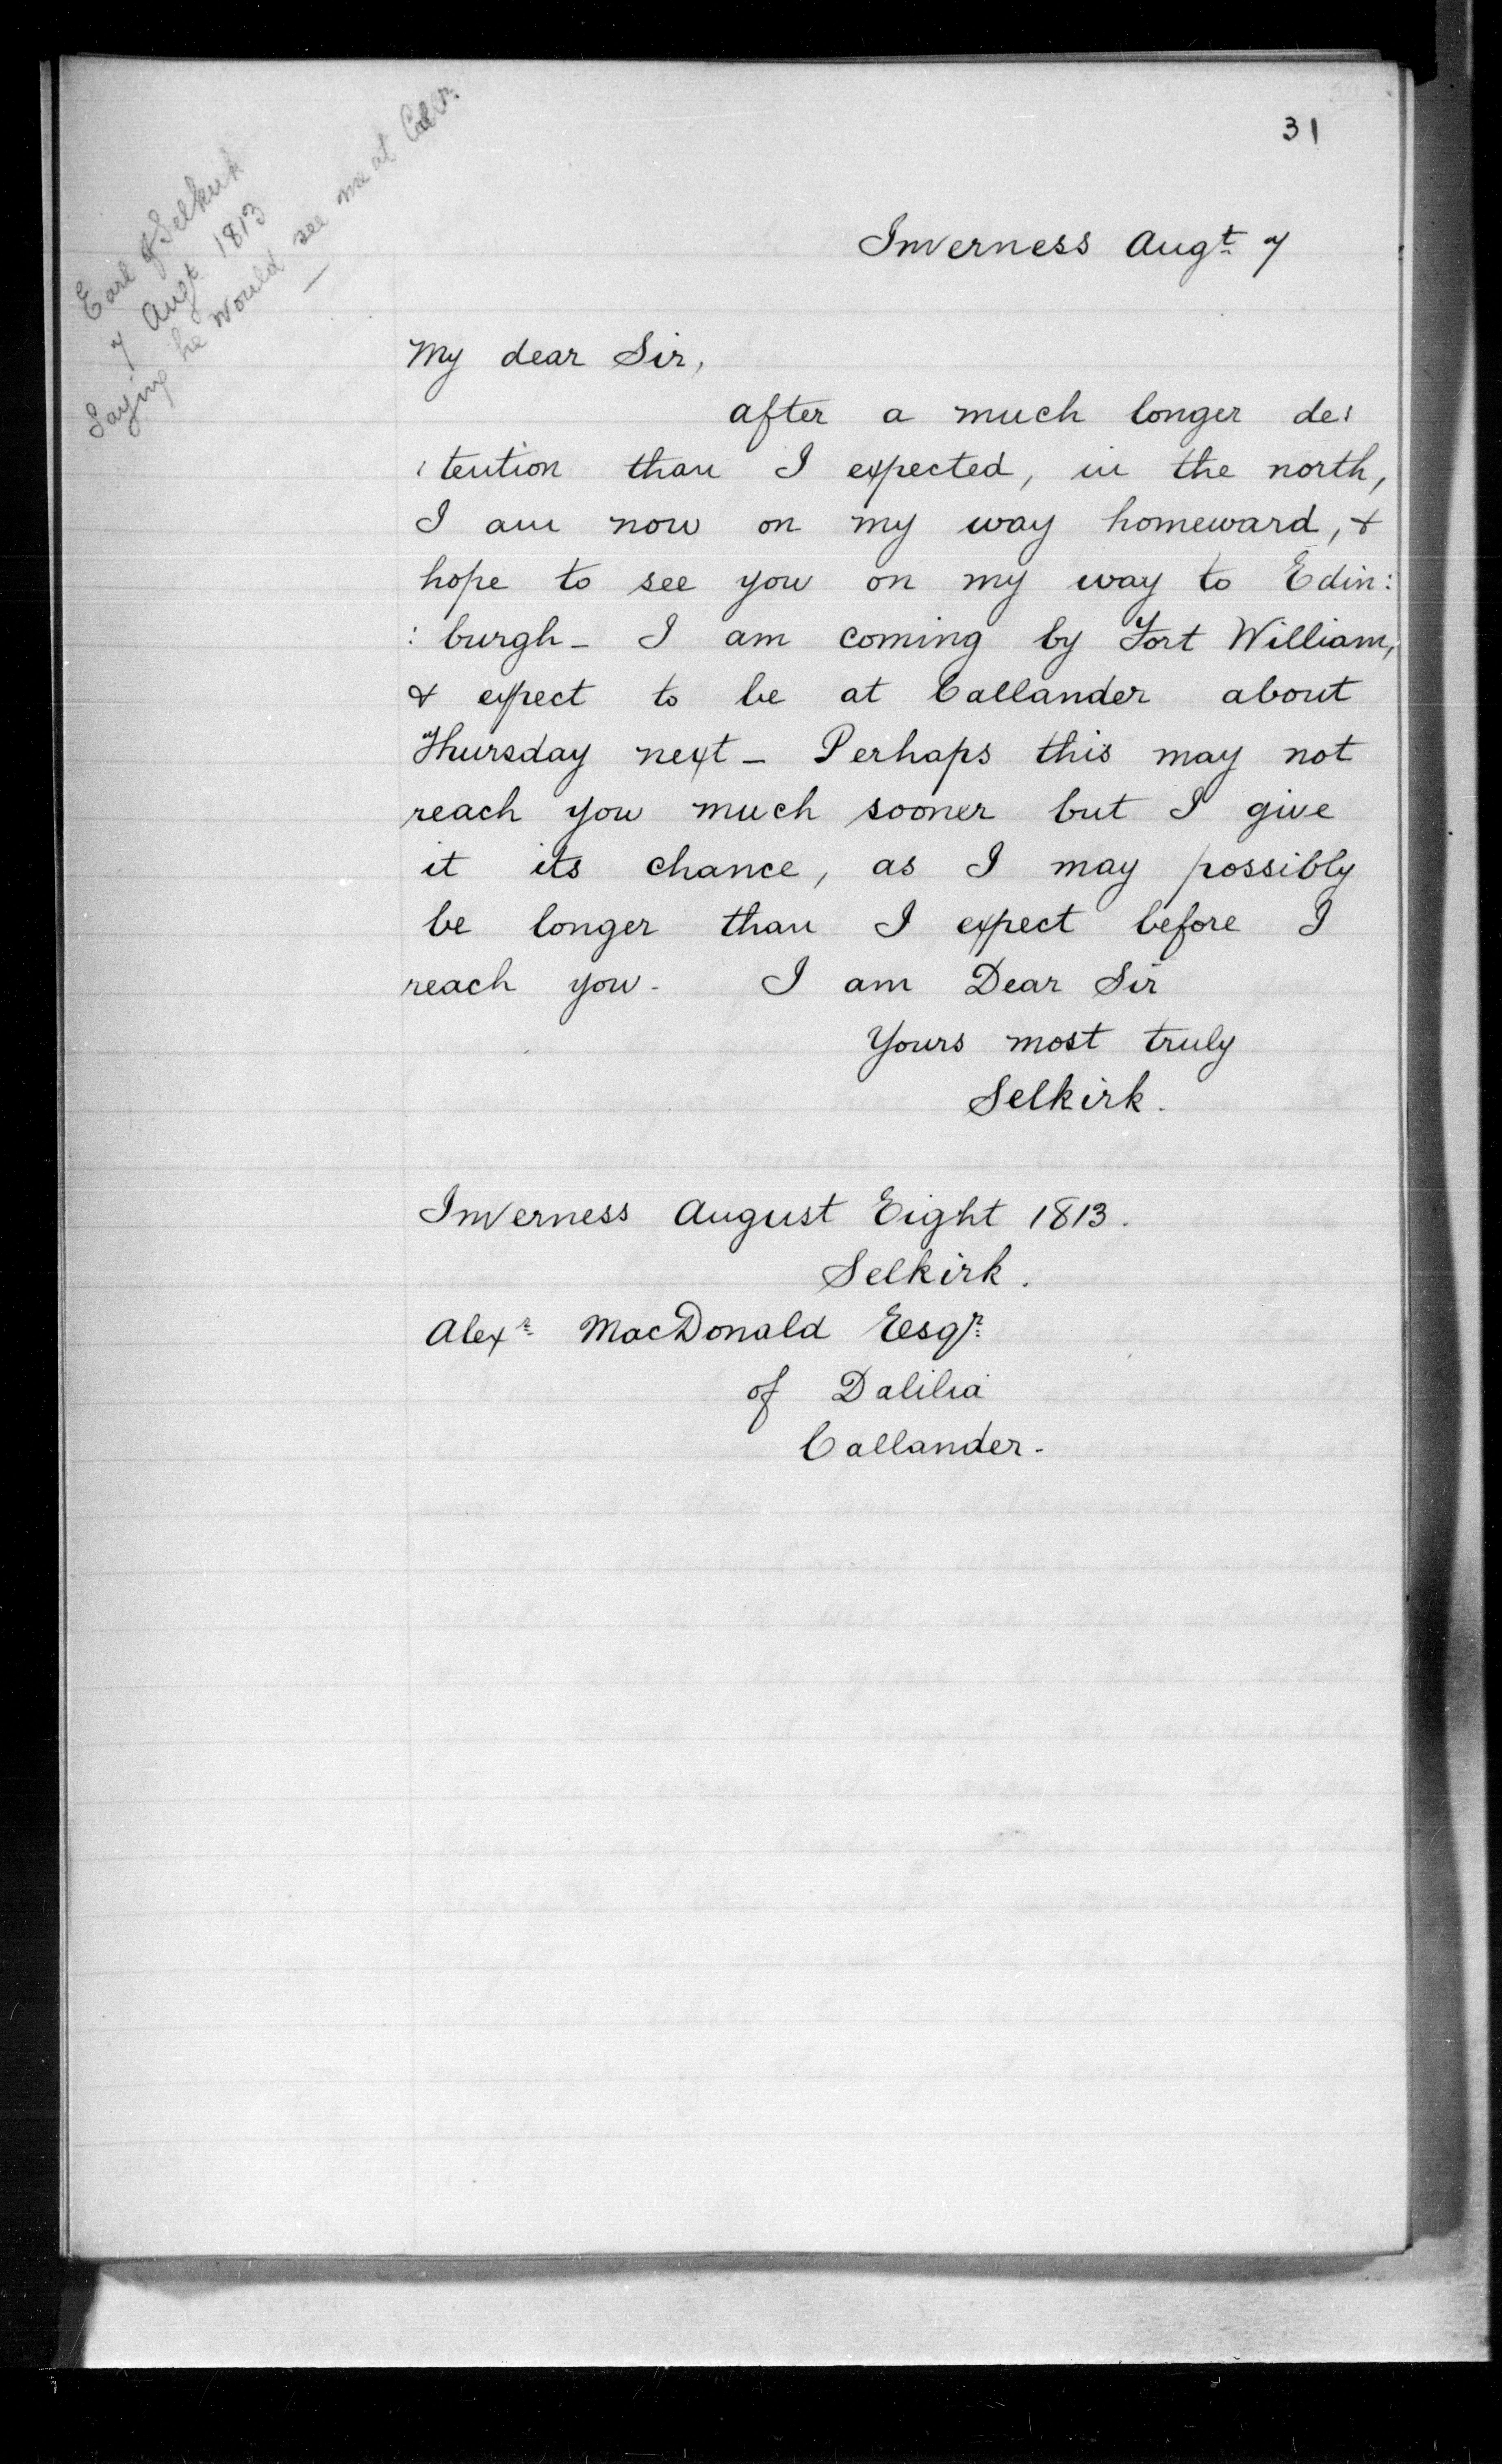 31
Earl of Selkirk
7 Augt 1813
Saying he would see me at Callr.
Inverness Augt 7
My dear Sir,
after a much longer de:
:tention than I expected, in the north,
I am now on my way homeward, &
hope to see you on my way to Edin:
:burgh - I am coming by Fort William,
& expect to be at Callander about
Thursday next - Perhaps this may not
reach you much sooner but I give
it its chance, as I may possibly
be longer than I expect before I
reach you - I am Dear Sir
Yours most truly
Selkirk.
Inverness August Eight 1813.
Selkirk.
Alexr MacDonald Esqr
of Dalilia
Callander -